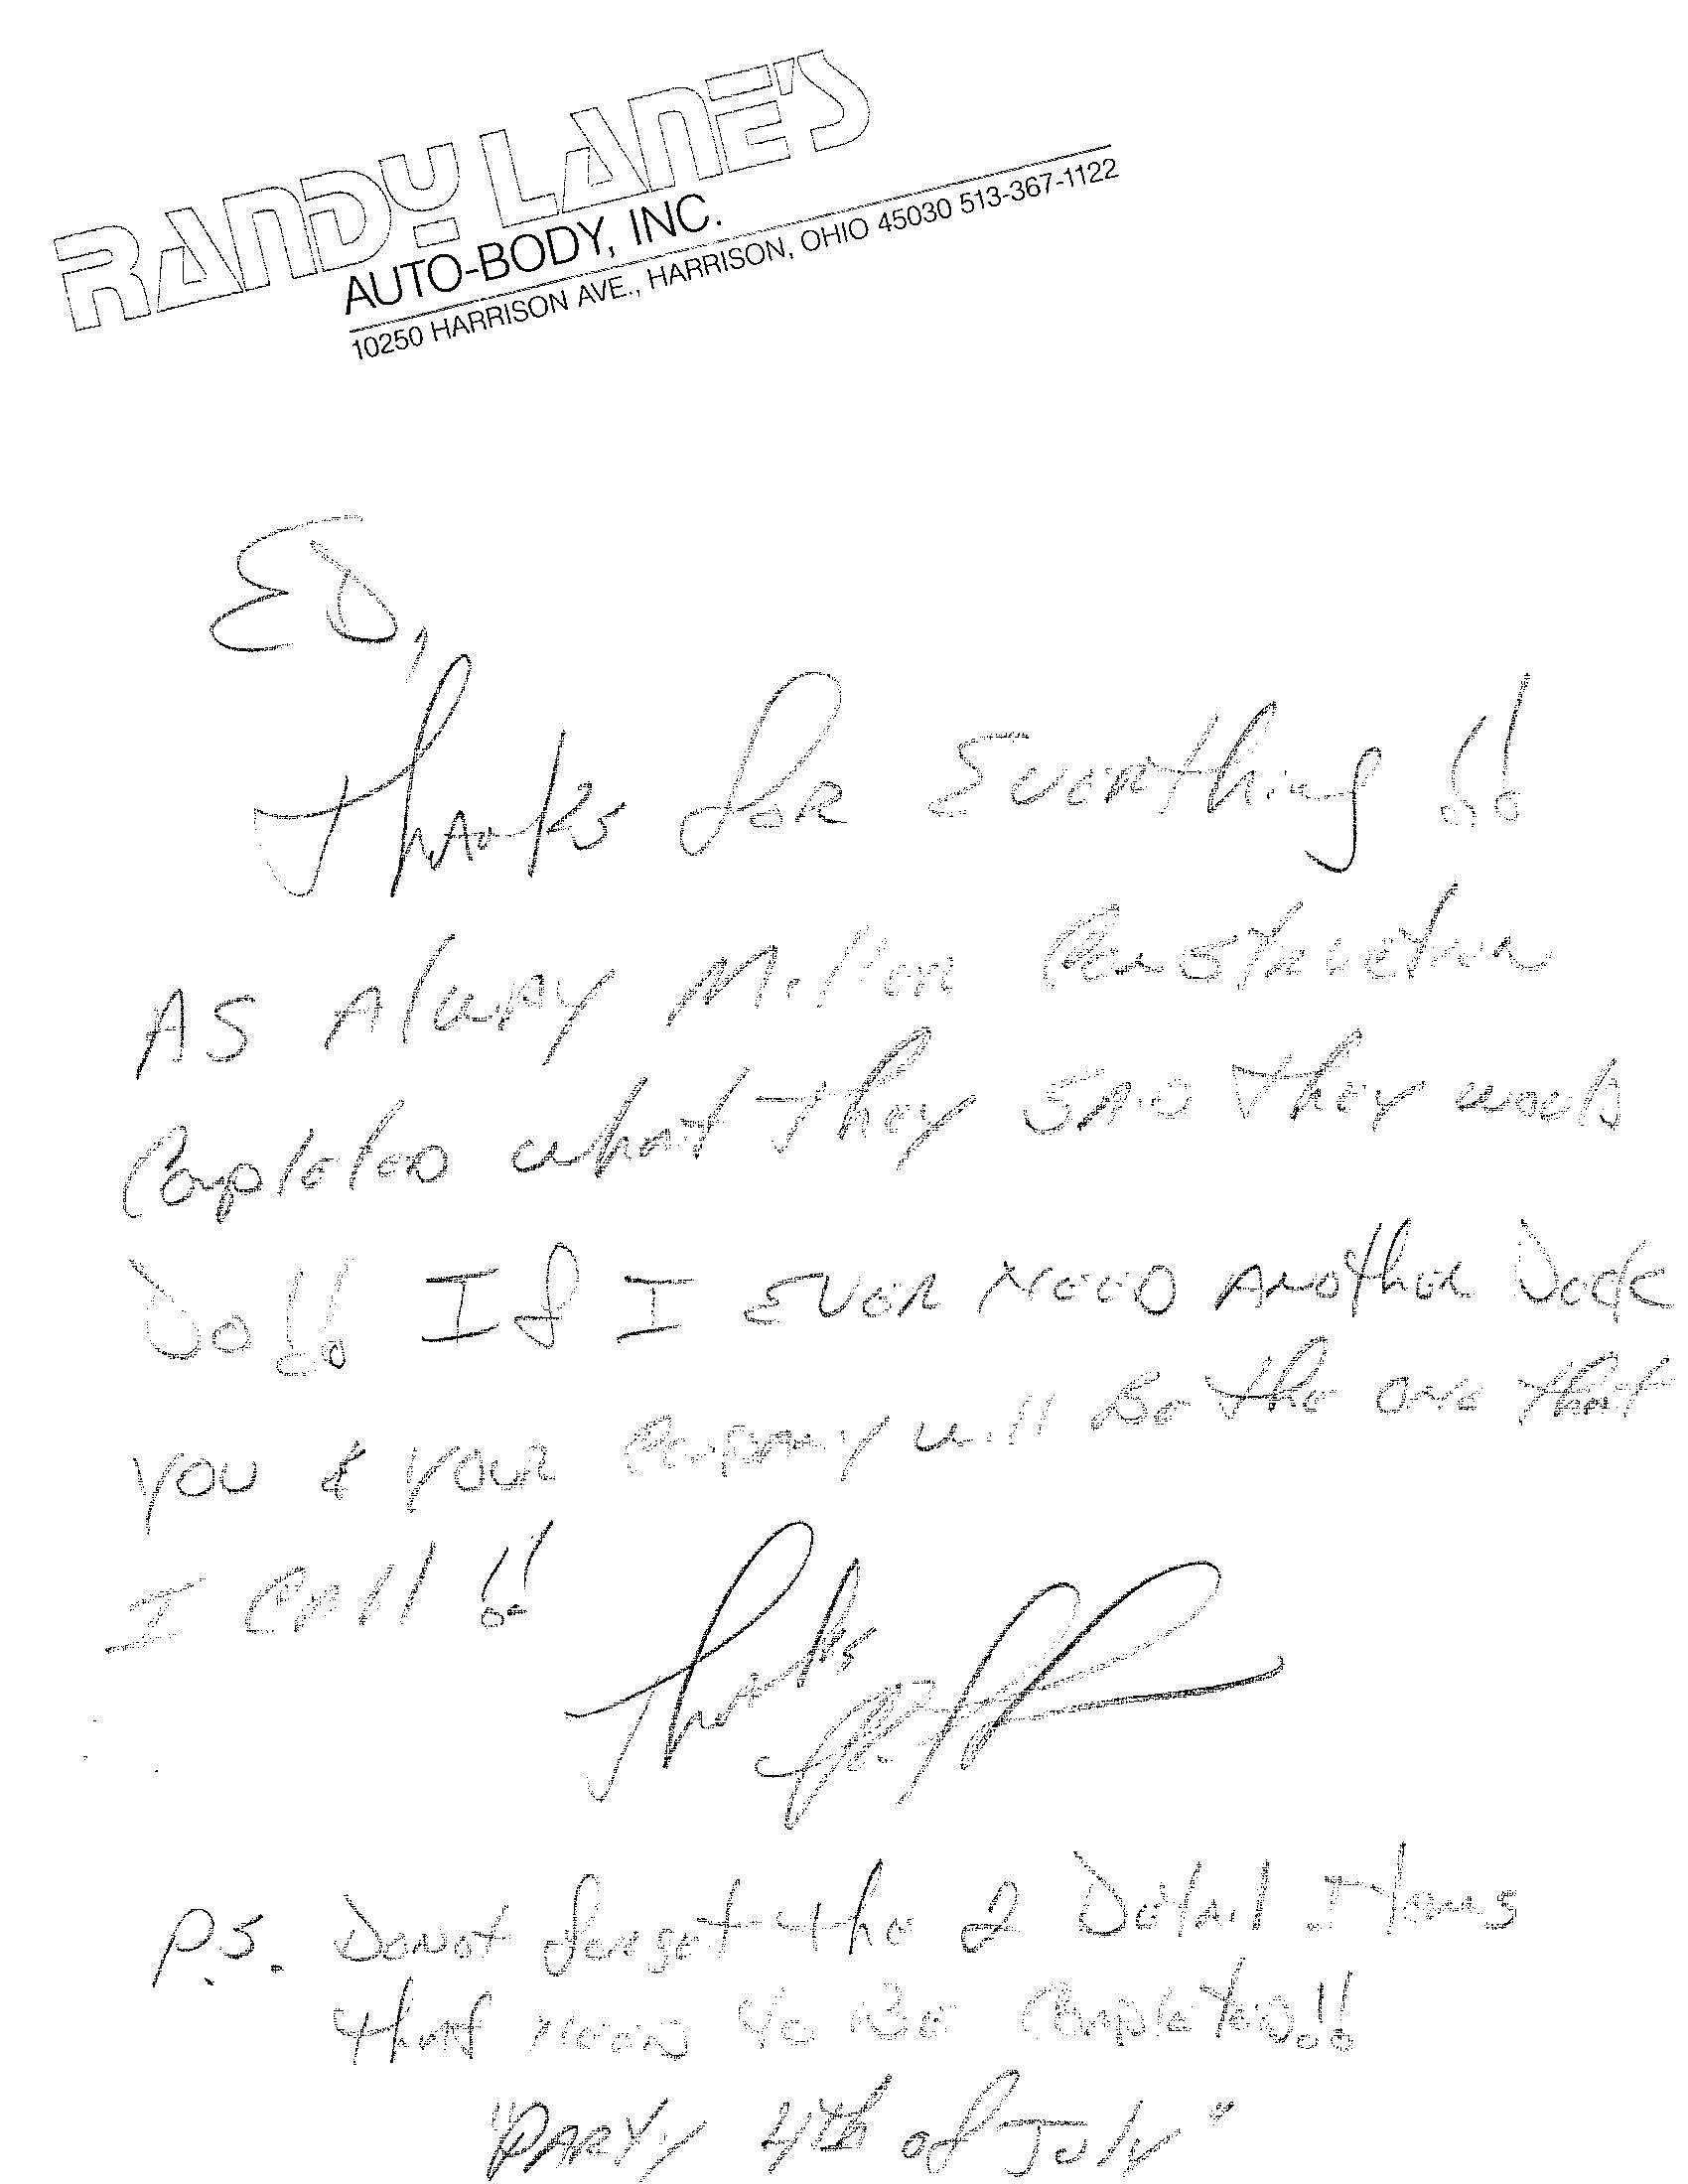 RANDY LANE'S
AUTO-BODY, INC.
10250 HARRISON AVE., HARRISON, OHIO 45030 513-367-1122
ED,
Thanks for Everthing !!
AS Alway Miller Construction
Completed what they SAID they would
Do!! If I EVER NEED ANother Deck
YOU & YOUR Company will Be the ONE that
I CAll !!
Thanks
P.S. DoNot forget the 2 DetAil Items
that NEED to BE Completed!!
"PARTY 4th of July"